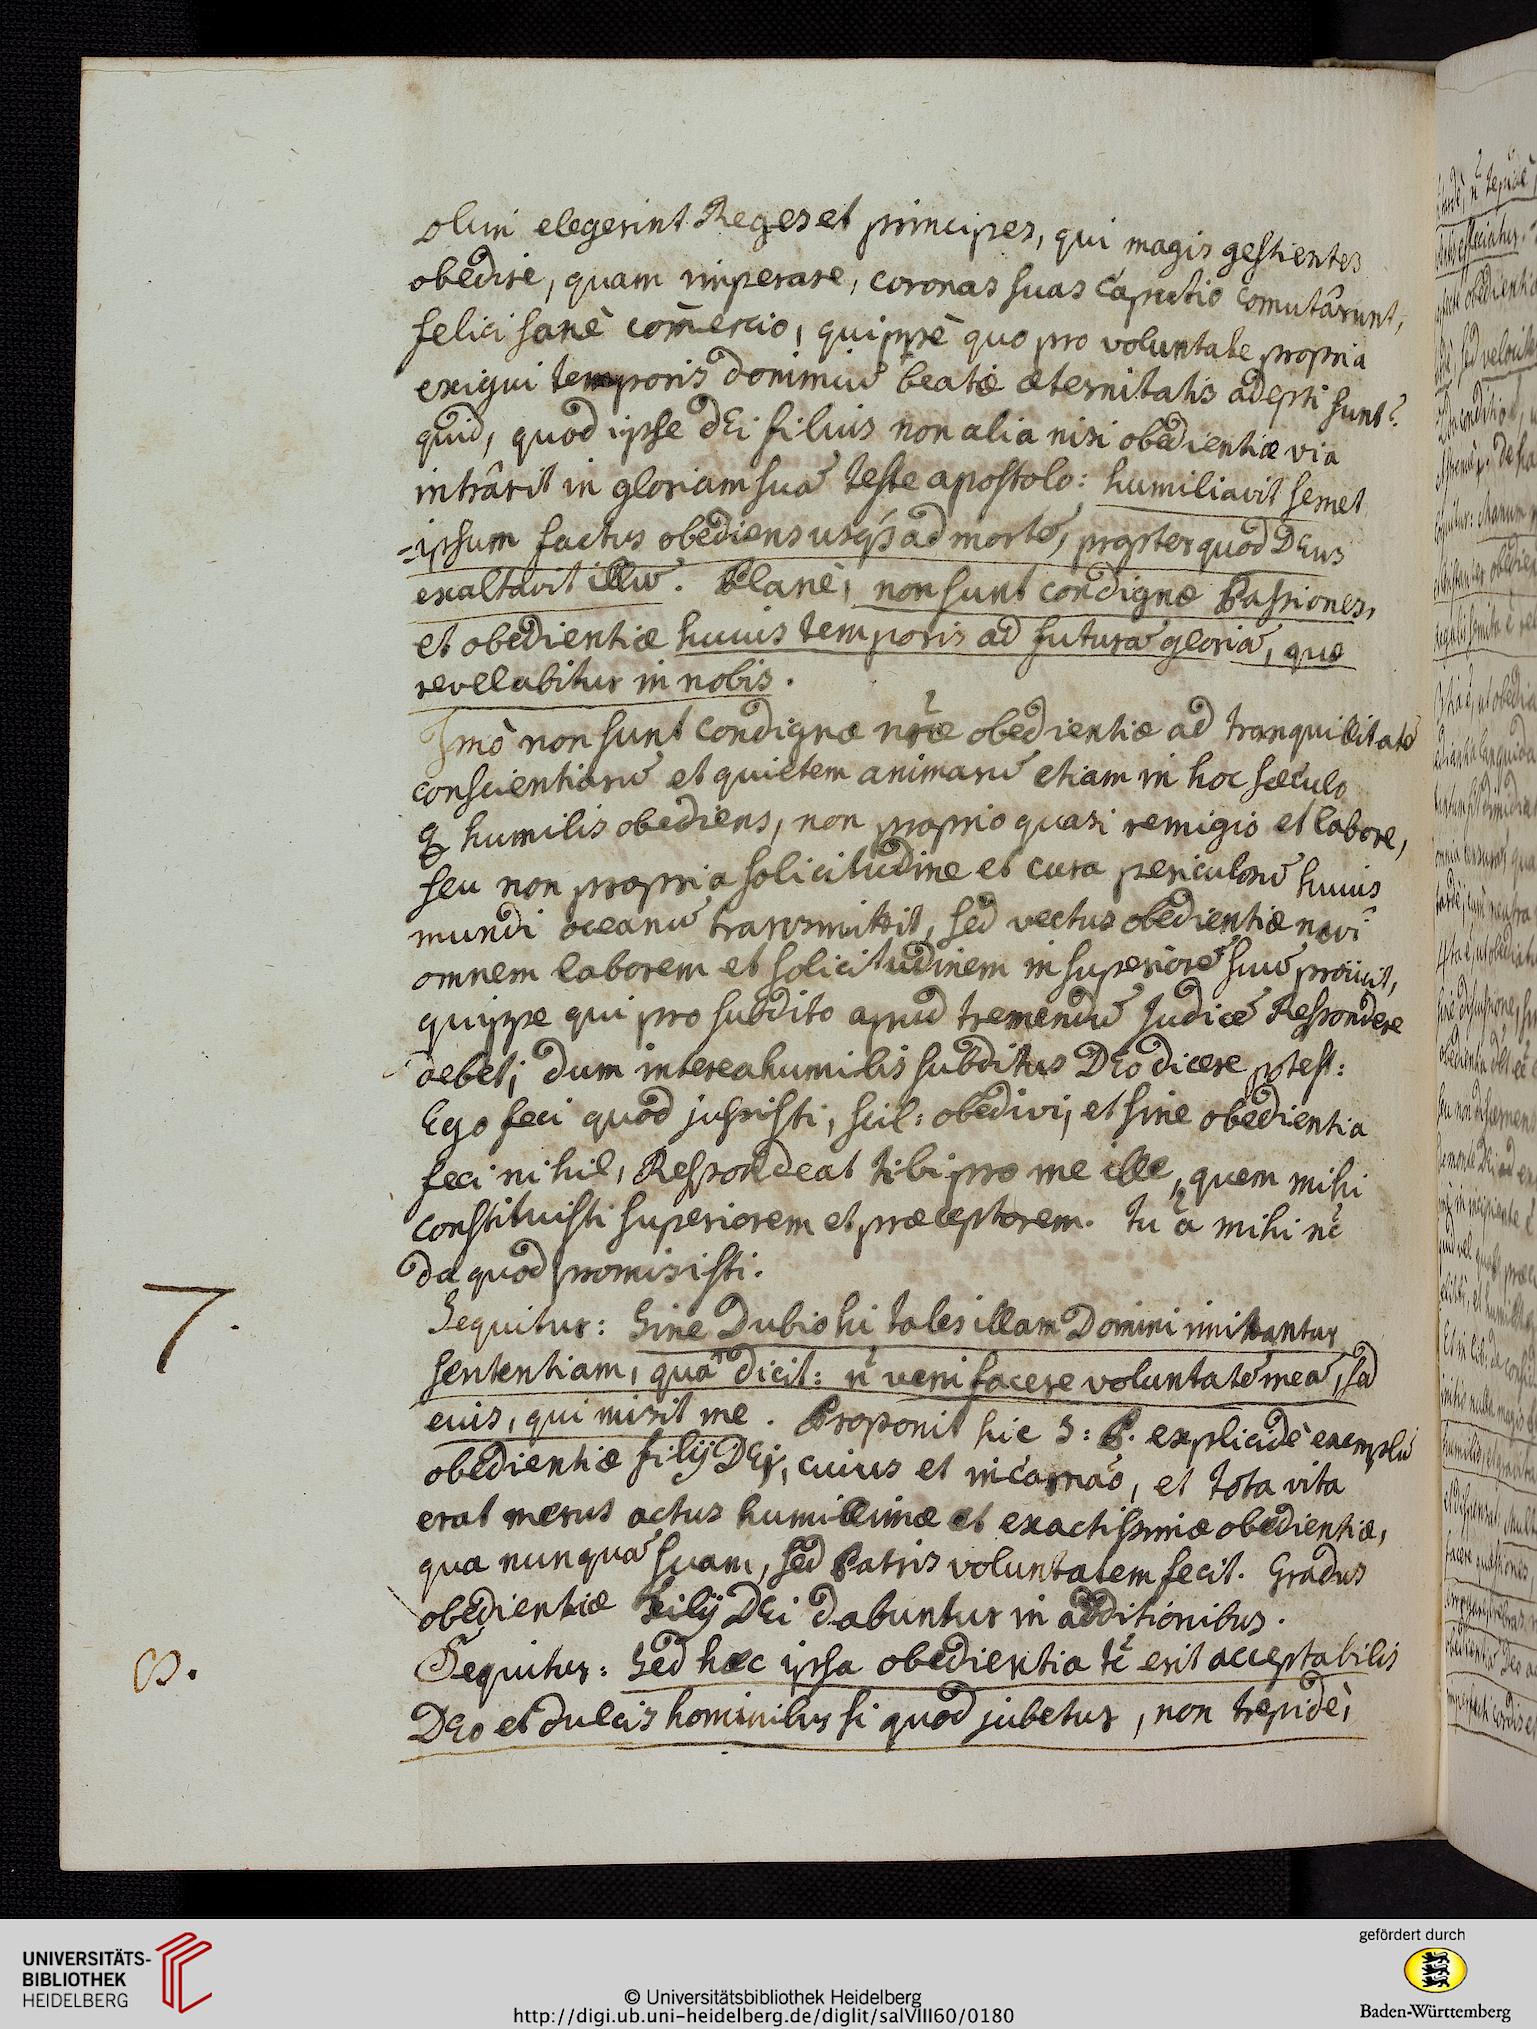 olim elegerint Reges et principes, qui magis gestientes
obedire, quam imperare, coronas suas caputio com̄utârunt,
felici sanè com̄ercio, quippè quo pro voluntate propria
exigui temporis dominiū beatæ æternitatis adepti sunt?
quid, quod ipse dEi filius non alia nisi obedientiæ via
intrârit in gloriam suā teste apostolo: humiliavit semet
-ipsum factus obediens usq́ȝ ad mortē, propter quod DEus
exaltavit illū. Planè, non sunt condignæ Passiones,
et obedientiæ huius temporis ad futurā gloriā, quæ
revellabitur in nobis.
Imò non sunt condignæ nr̃æ obedientiæ ad tranquillitatē
conscientiarū et quietem animarū etiam in hoc sæculo
humilis obediens, non proprio quasi remigio et labore,
seu non propria solicitudine et cura periculosū huius
mundi oceanū transmittit, sed vectus obedientiæ navi
omnem laborem et solicitudinem in superiorē suū proiicit,
quippe qui pro subdito apud tremendū Judicē Respondere
debet; dum interea humilis subditus DEo dicere potest:
Ego feci quod jussisti, scil: obedivi, et sine obedientia
feci nihil, Respondeat tibi pro me ille, quem mihi
constituisti superiorem et præceptorem. tu ã mihi nc̃
da quod promisisti.
7.
Sequitur: Sine Dubio hi tales illam Domini imitantur
sententiam, quā dicit: ñ veni facere voluntatē meā, sed
eius, qui misit me. Proponit hic S: P. explicidè exemplū
obedientiæ filij DEi, cuius et incarnaō, et tota vita
erat merus actus humillimæ et exactissimæ obedientiæ,
qua nunquā suam, sed Patris voluntatem fecit. Gradus
obedientiæ Filij DEi dabuntur in additionibus.
8.
Sequitur: Sed hæc ipsa obedientia tc̃ erit acceptabilis
DEo et dulcis hominibus si quod jubetur, non trepidè,
UNIVERSITÄTS-
BIBLIOTHEK
HEIDELBERG
© Universitätsbibliothek Heidelberg
http://digi.ub.uni-heidelberg.de/diglit/salVIII60/0180
gefördert durch
Baden-Württemberg